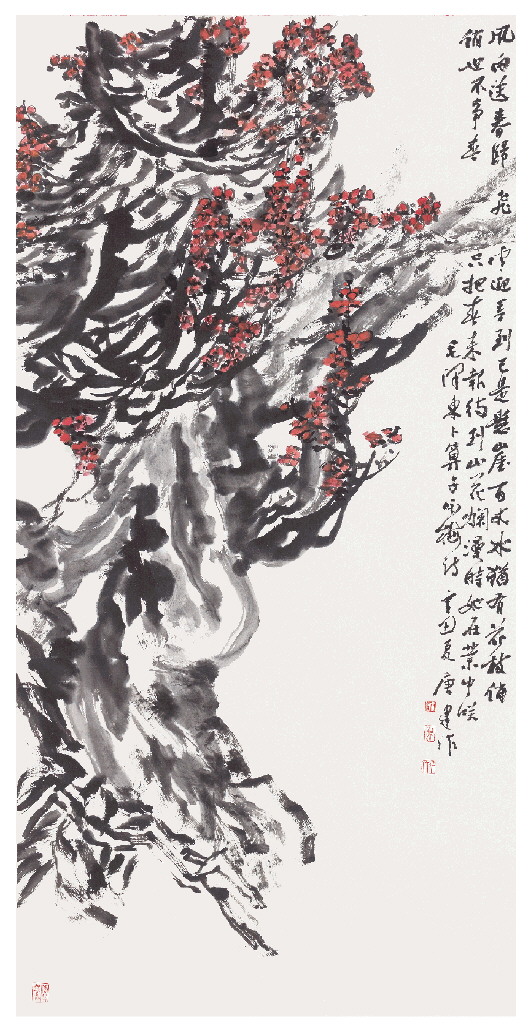 风雨送春归 飞雪迎春到 已是悬崖百丈冰 犹有花枝俏
俏也不争春 只把春来报 待到山花烂漫时 她在丛中笑
毛泽东卜算子咏梅诗 夏唐建作